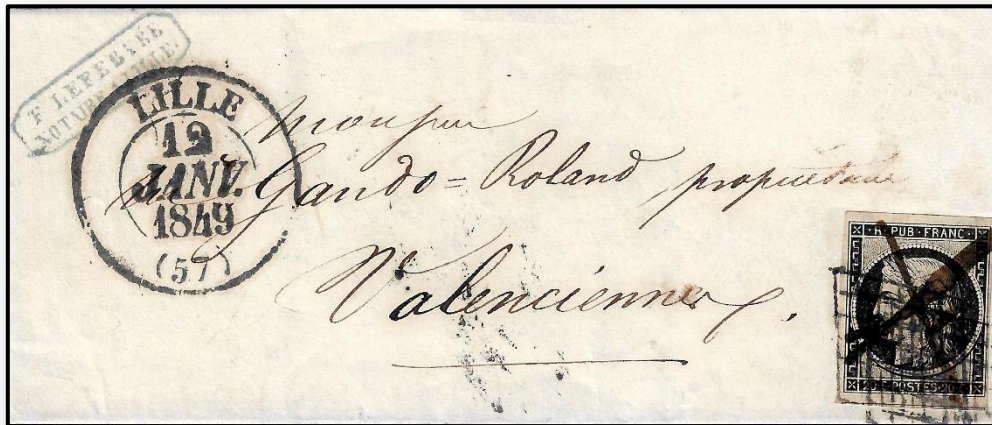 F. LEFEBVRE
NOTAIRE A LILLE.
LILLE
12
JANV.
1849
(57)
Monsieur
Gando=Roland, propriétaire
Valenciennes.
REPUB·FRANC·
20 POSTES 20